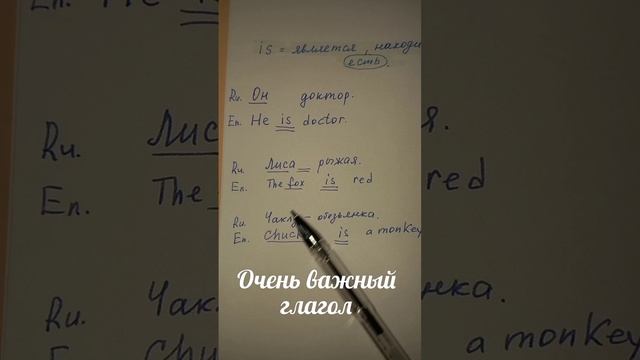 is = является, находи
есть.
Ru. Он доктор.
En. He is doctor.
Ru. Лиса рыжая.
En. The fox is red
Ru. обезьянка.
En. is a monkey
Очень важный
глагол